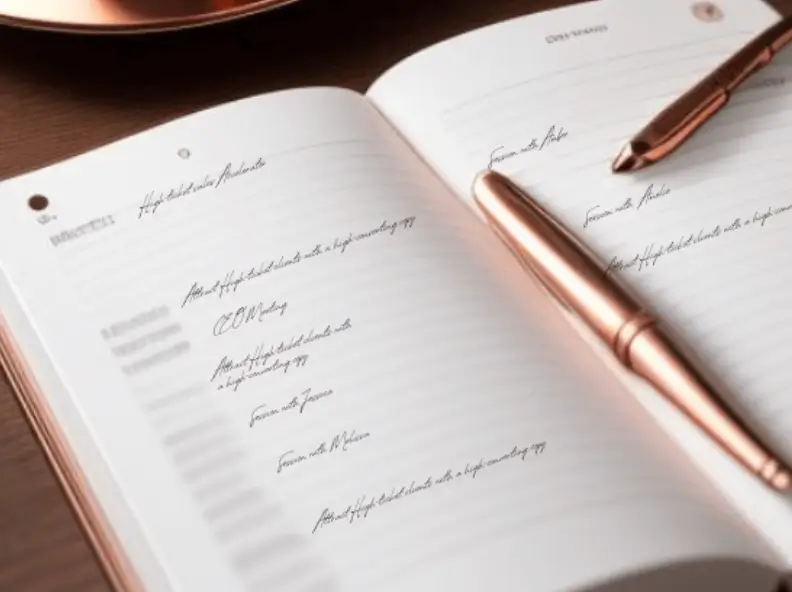 High-ticket sales Accelerator
Attract High-ticket clients with a high-converting copy
CEO Meeting
Attract High-ticket clients with
a high-converting copy
Session with Jessica
Session with Melissa
Attract High-ticket clients with a high-converting copy
Session with
Session with
Attract High-ticket clients with a high-conv